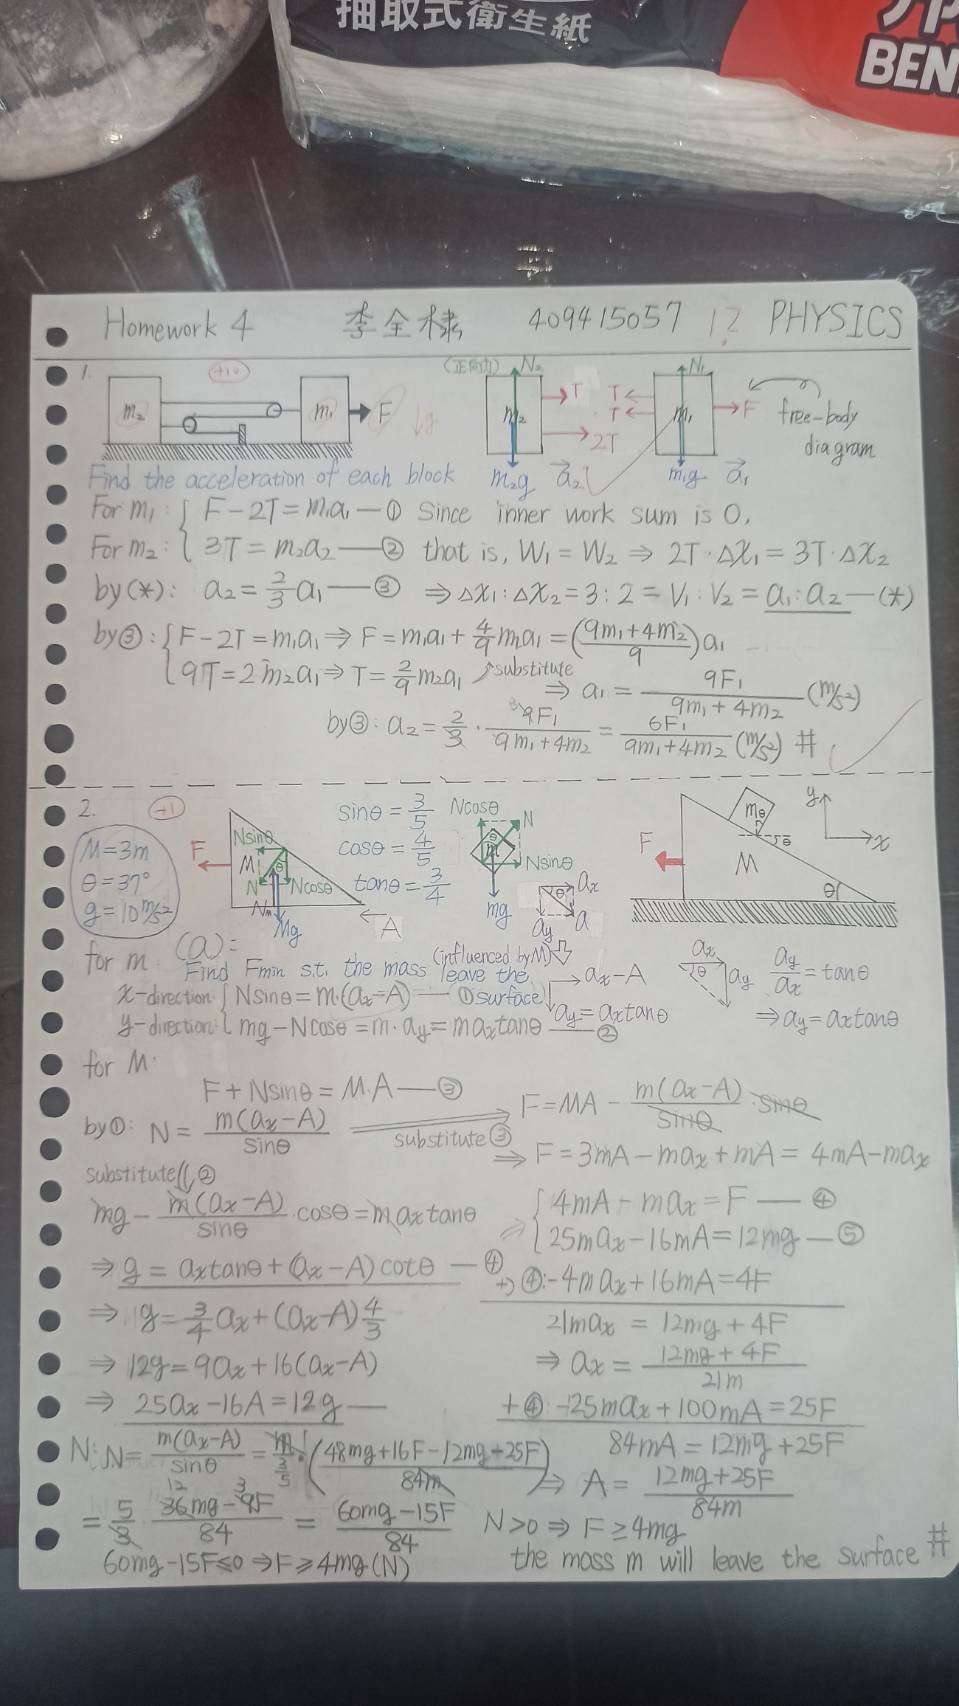 抽取式衛生紙
BEN
Homework 4 李全棣 409415057 1? PHYSICS
1. +10
m₂ m₁ F ↓g
(正向力) N₂ T 2T m₂ m₂g a⃗₂
N₁ T T m₁ F m₁g a⃗₁
free-body
diagram
Find the acceleration of each block
For m₁: { F-2T=m₁a₁—① Since inner work sum is 0,
For m₂: { 3T=m₂a₂—② that is, W₁=W₂ ⇒ 2T·ΔX₁=3T·ΔX₂
by(*): a₂=2/3 a₁—③ ⇒ ΔX₁:ΔX₂=3:2=V₁:V₂=a₁:a₂—(*)
by③: { F-2T=m₁a₁ ⇒ F=m₁a₁+4/9 m₂a₁=((9m₁+4m₂)/9)a₁
{ 9T=2m₂a₁ ⇒ T=2/9 m₂a₁ ↗substitute
⇒ a₁=9F₁/(9m₁+4m₂) (m/s²)
by③: a₂=2/3·9F₁/(9m₁+4m₂)=6F₁/(9m₁+4m₂) (m/s²) #
2. +1
M=3m
θ=37°
g=10m/s²
F Nsinθ M θ N Ncosθ Mg A
sinθ=3/5
cosθ=4/5
tanθ=3/4
Ncosθ N θ m Nsinθ mg
ax θ ay a
F m θ M θ y x
(a):
for m: Find Fmin s.t. the mass (influenced by M) leave the surface
x-direction: { Nsinθ=m·(ax-A)—① → ax-A
y-direction: { mg-Ncosθ=m·ay=maxtanθ—② ay=axtanθ
ax θ ay ay/ax=tanθ
⇒ay=axtanθ
for M:
F+Nsinθ=M·A—③
by①: N=m(ax-A)/sinθ substitute③ F=MA-m(ax-A)/sinθ·sinθ
⇒ F=3mA-max+mA=4mA-max
substitute②
mg-m(ax-A)/sinθ·cosθ=maxtanθ
⇒ { 4mA-max=F—④
{ 25max-16mA=12mg—⑤
⇒ g=axtanθ+(ax-A)cotθ—④
+) ④:-4max+16mA=4F
⇒ g=3/4 ax+(ax-A)4/3
21max=12mg+4F
⇒ 12g=9ax+16(ax-A)
⇒ ax=(12mg+4F)/21m
⇒ 25ax-16A=12g—
+④:-25max+100mA=25F
84mA=12mg+25F
N: N=m(ax-A)/sinθ=m/(3/5)·((48mg+16F-12mg-25F)/84m) ⇒ A=(12mg+25F)/84m
=5/3·(36mg-9F)/84=(60mg-15F)/84 N>0 ⇒ F≥4mg
60mg-15F≤0 ⇒ F≥4mg(N) the mass m will leave the surface #